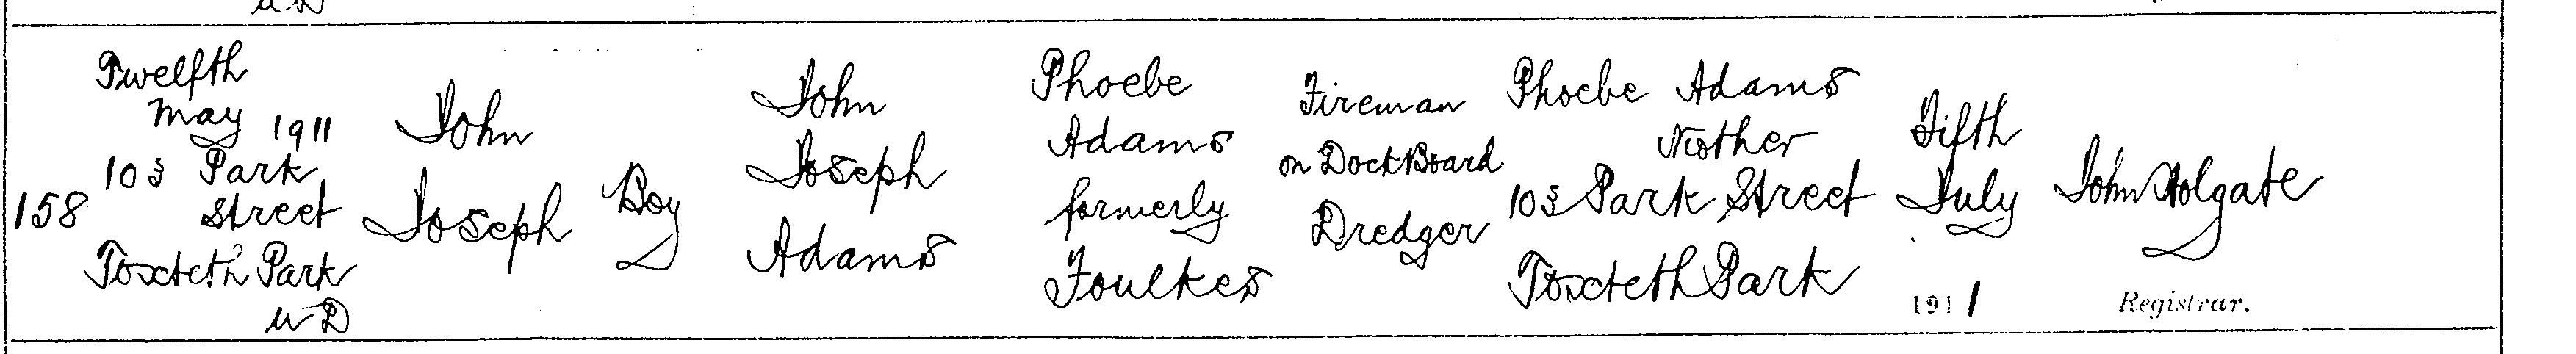 158
Twelfth
May 1911
103 Park
Street
Toxteth Park
UD
John
Joseph
Boy
John
Joseph
Adams
Phoebe
Adams
formerly
Foulkes
Fireman
on Dock Board
Dredger
Phoebe Adams
Mother
103 Park Street
Toxteth Park
Fifth
July
1911
John Holgate
Registrar.